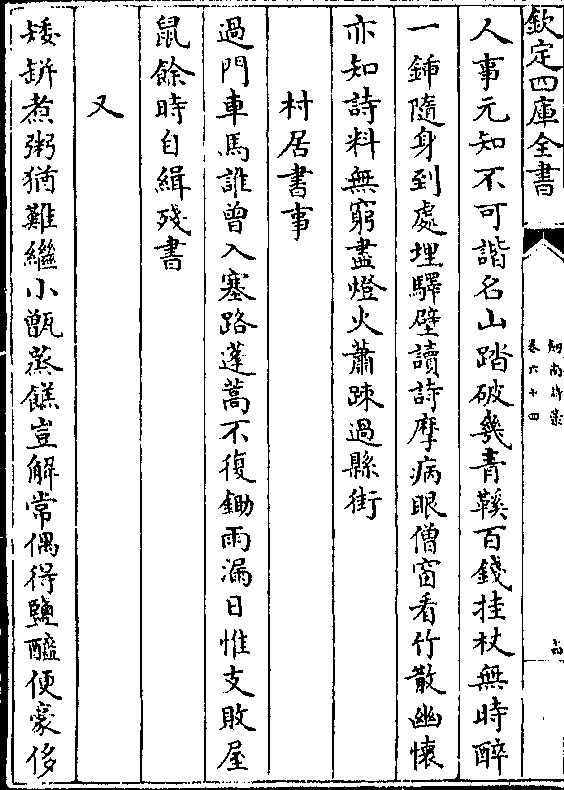 欽定四庫全書
劍南詩稾
卷六十四
人事元知不可諧名山踏破幾青鞵百錢挂杖無時醉
一鍤隨身到處埋驛壁讀詩摩病眼僧窗看竹散幽懷
亦知詩料無窮盡燈火蕭疎過縣街
村居書事
過門車馬誰曾入塞路蓬蒿不復鋤雨漏日惟支敗屋
鼠餘時自緝殘書
又
矮缾煮粥猶難繼小甑蒸餻豈解常偶得鹽醯便豪侈